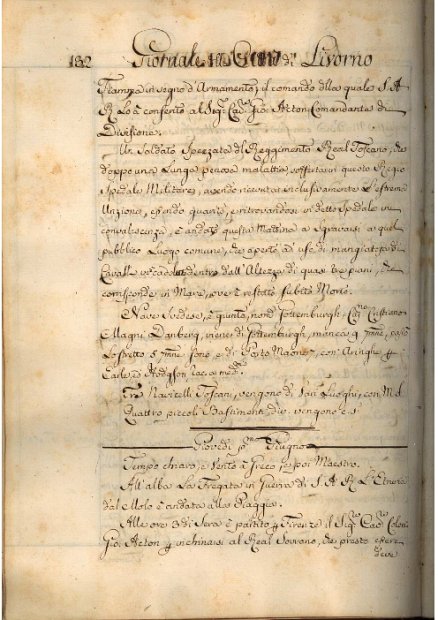 182 Giornale di Livorno
in segno d'Armamento; il comando della quale S. A.
R. Lo à conferito al Sig.r Cav.e Gio: Acton Comandante di
Divisione.
Un Soldato Spezzato del Reggimento Real Toscano, che
doppo una Lunga penosa malattia, sofferta in questo Regio
Spedale Militare, avendo ricevuta inclusivamente l'estrema
Unzione, essendo guarito, e ritrovandosi in detto Spedale in
convalescenza, è andato questa Mattina a Sgravarsi a quel
pubblico Luogo comune, che aperto ad uso di mangiatoia di
Cavalli vi è caduto dentro dall'Altezza di quasi tre piani, che
corrisponde in Mare, ove è restato subito Morto.
Nave Svedese, è giunta, nom.a Gottemburgh, Cap.no Cristiano
Magni Danberg, viene di Gottemburgh, manca
Lo stretto e di Porto Maone, con Aringhe
Earle, e Hodgson, Rac.o med.mo
Tre Navicelli Toscani, vengono di Luoghi, con M.d
Quattro piccoli Bastimenti d.o vengono e s.
Giovedì p.mo Giugno
Tempo chiaro, e Vento à Greco, e poi Maestro.
All'alba La Fregata in Guerra di S. A. R. L'Etruria
dal Molo è andata alla Piaggia.
Alle ore 3 di Sera è partito p. Firenze il Sig.r Cav.e Colon.
Gio: Acton p. inchinarsi al Real Sovrano, che presto
deve